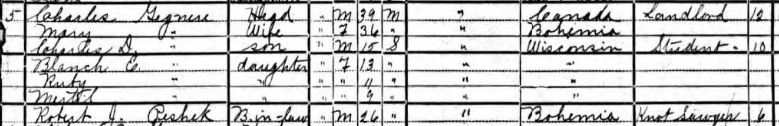 5 Charles Gegnere Head " M 39 M " Canada Landlord 12
Mary " Wife " F 36 " " Bohemia
Charles D. " son " M 15 S " Wisconsin Student - 10
Blanch E. " daughter " F 13 " " "
Ruby " " " " 11 " " "
" " " " 9 " " "
Robert J. Peshek B-in-law " M 26 " " Bohemia Knot Sawyer 6